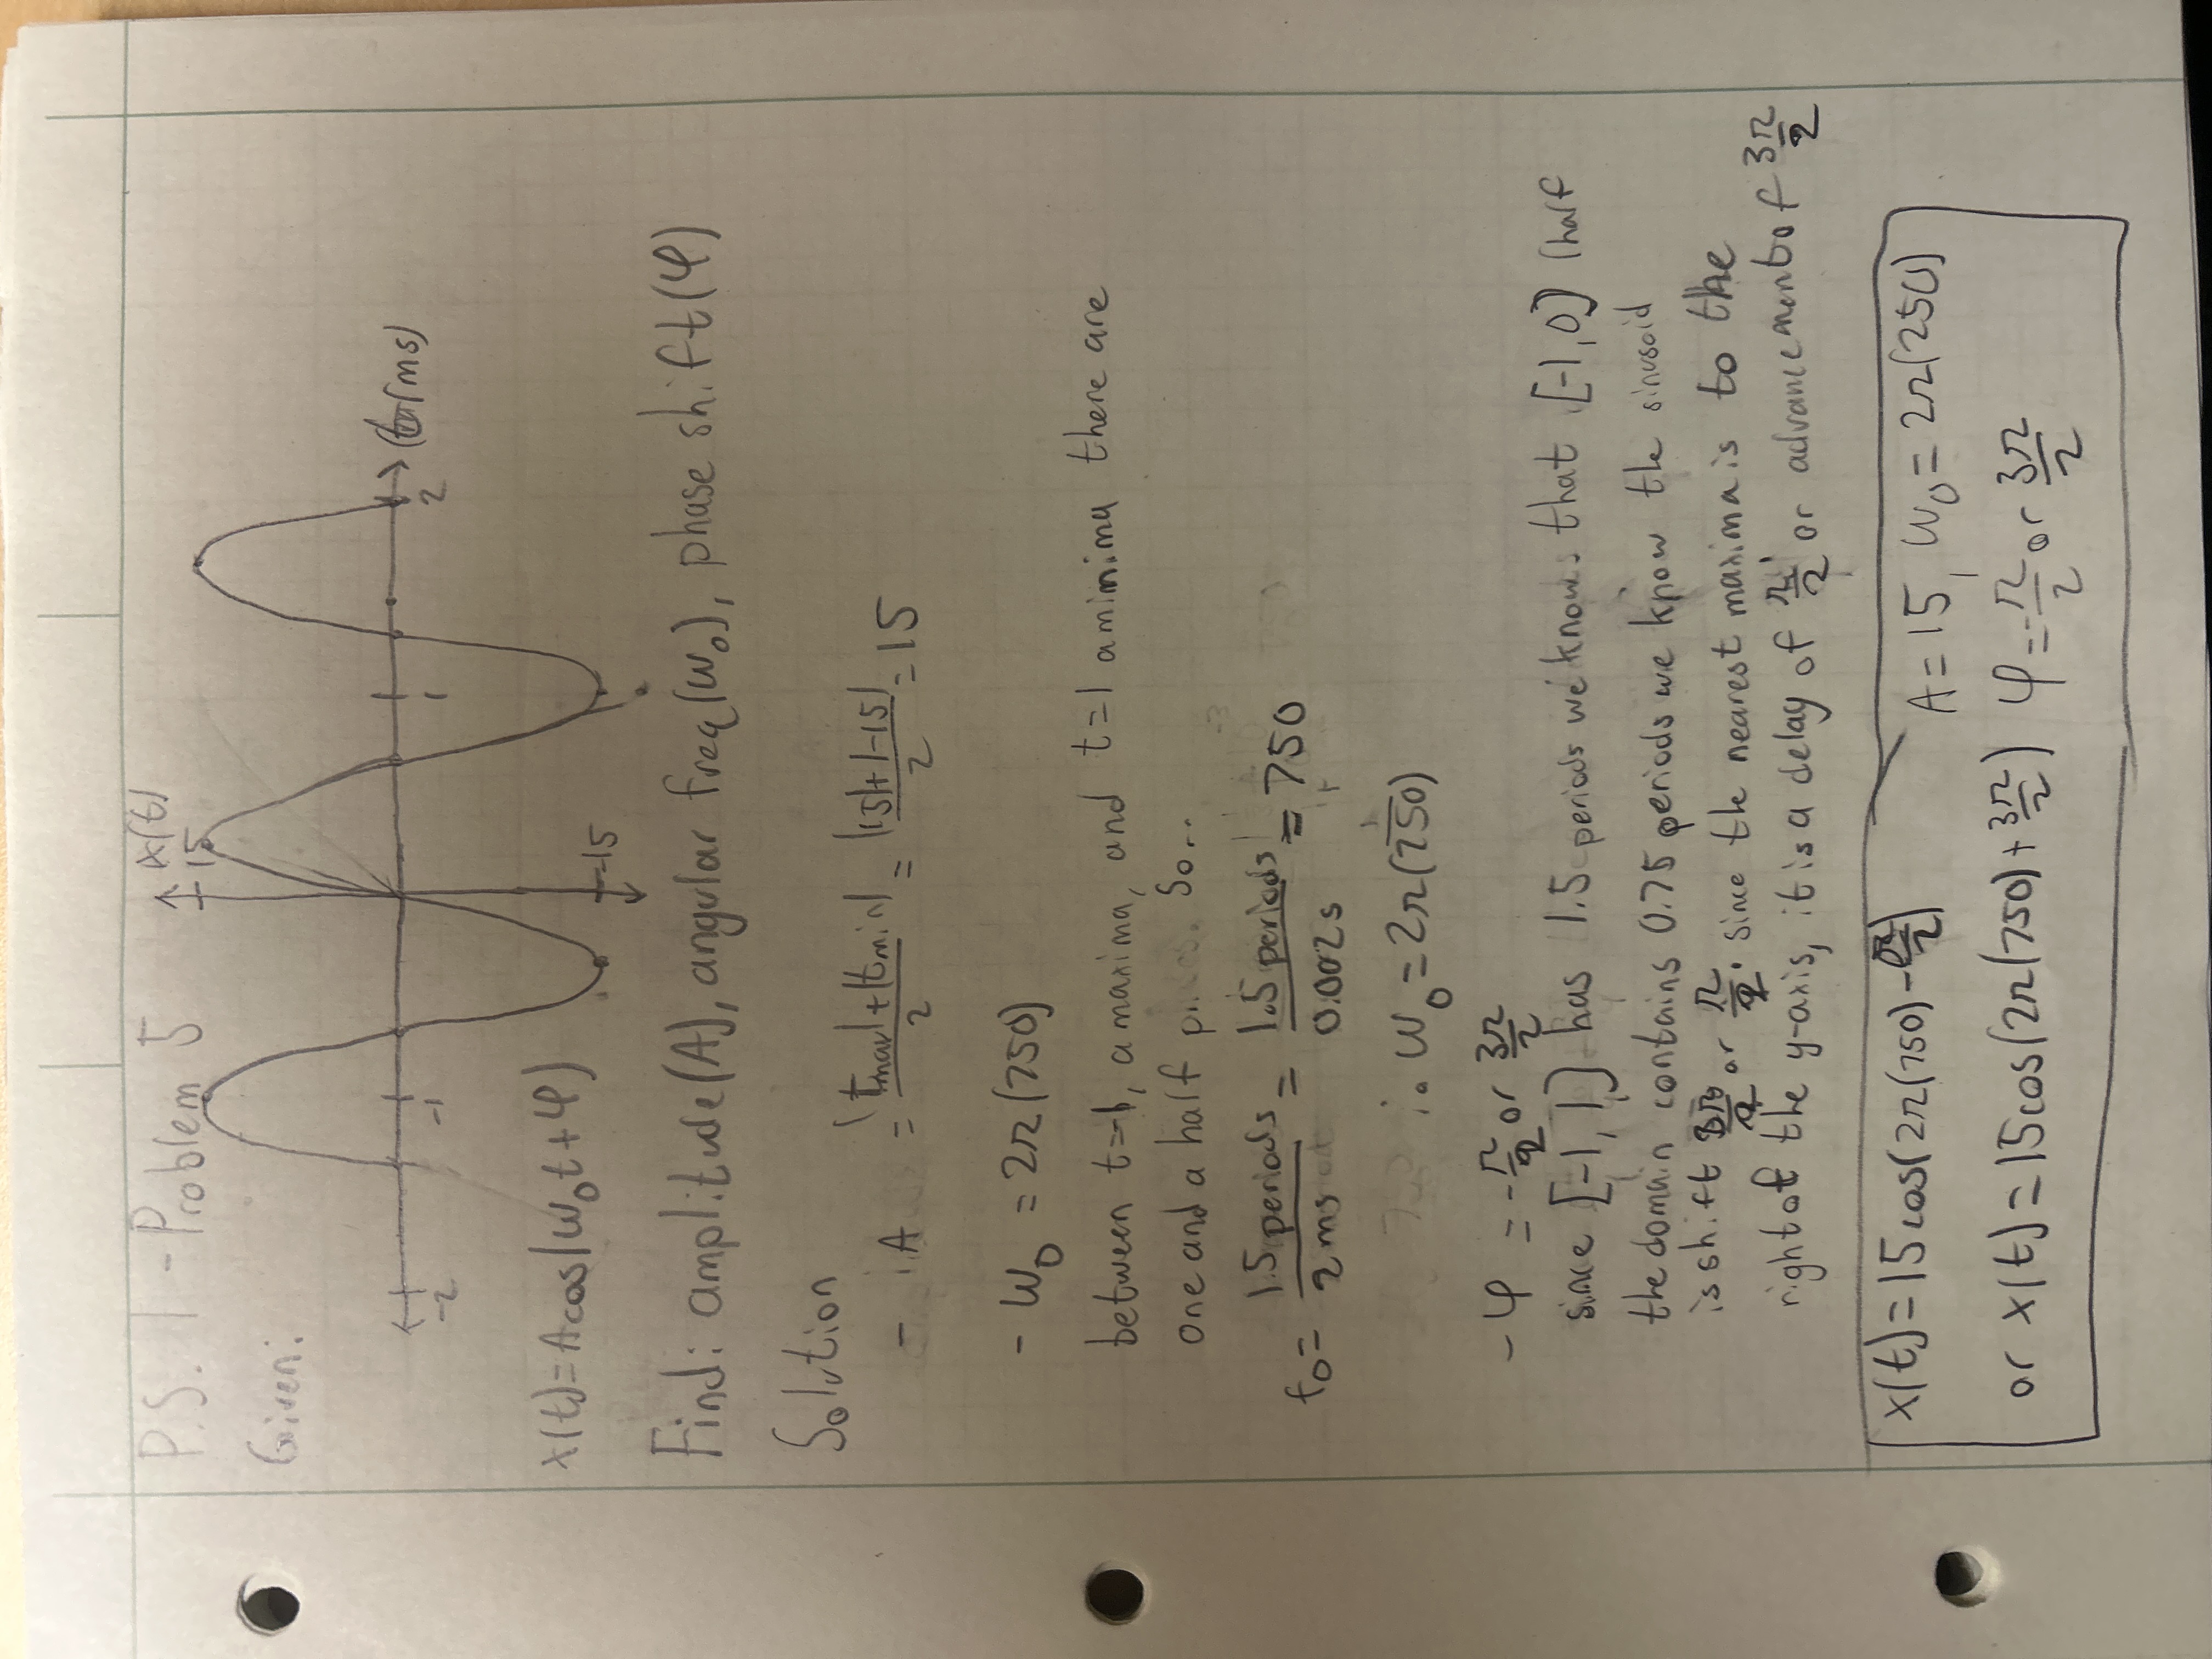 P.S. 1 - Problem 5
x(t)
15
Given:
-2 -1 1 2 (ms)
x(t)=Acos(ω₀t+φ)
-15
Find: amplitude(A), angular freq(ω₀), phase shift(φ)
Solution
- A = |tmax|+|tmin| / 2 = |15|+|-15| / 2 = 15
- ω₀ = 2π(750)
between t=-1, a maxima, and t=1 a minima there are
one and a half So..
f₀= 1.5 periods / 2ms = 1.5 periods / 0.002s = 750
∴ ω₀=2π(750)
- φ = -π/2 or 3π/2
since [-1, 1] has 1.5 periods we know that [-1,0] half
the domain contains 0.75 periods we know the sinusoid
is shift 3π/2 or π/2. since the nearest maxima is to the
right of the y-axis, it is a delay of π/2 or advancement of 3π/2
x(t)=15cos(2π(750)-π/2) A=15, ω₀=2π(250)
or x(t)=15cos(2π(750)+3π/2) φ=-π/2 or 3π/2